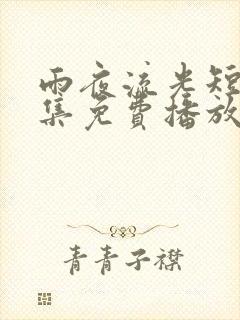 雨夜流光短
集免費播放
青青子襟